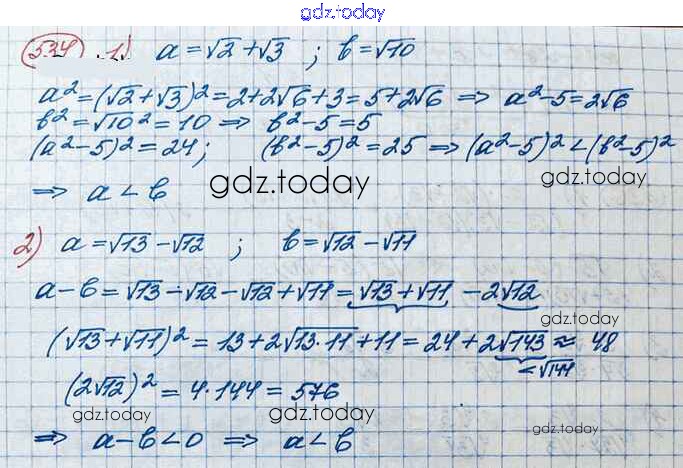 gdz.today
534 . 1) a = √2 + √3 ; b = √10
a² = (√2 + √3)² = 2 + 2√6 + 3 = 5 + 2√6 ⇒ a² - 5 = 2√6
b² = √10² = 10 ⇒ b² - 5 = 5
(a² - 5)² = 24; (b² - 5)² = 25 ⇒ (a² - 5)² < (b² - 5)²
⇒ a < b gdz.today gdz.today
2) a = √13 - √12 ; b = √12 - √11
a - b = √13 - √12 - √12 + √11 = √13 + √11 - 2√12
gdz.today
(√13 + √11)² = 13 + 2√13·11 + 11 = 24 + 2√143 ≈ 48
< √144
(2√12)² = 4·144 = 576
gdz.today gdz.today gdz.today
⇒ a - b < 0 ⇒ a < b